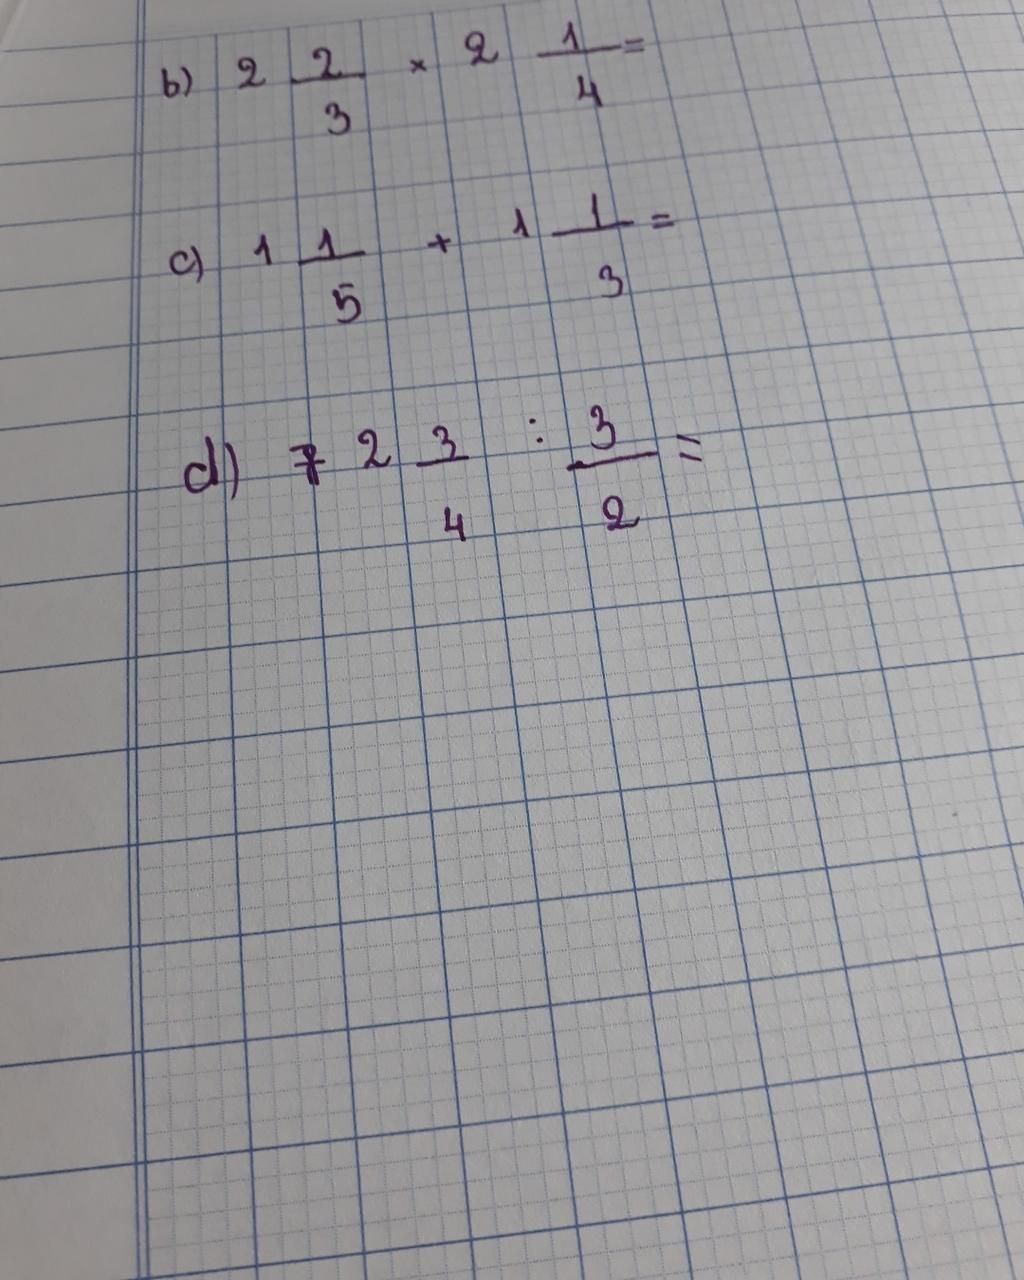 b) 2 2/3 × 2 1/4 =
c) 1 1/5 + 1 1/3 =
d) 2 3/4 : 3/2 =